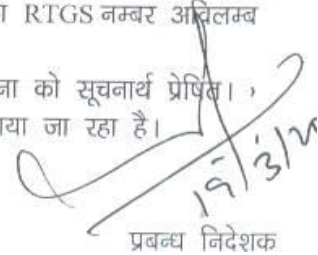 RTGS नम्बर अविलम्ब
ना को सूचनार्थ प्रेषित।
या जा रहा है।
19/3/
प्रबन्ध निदेशक